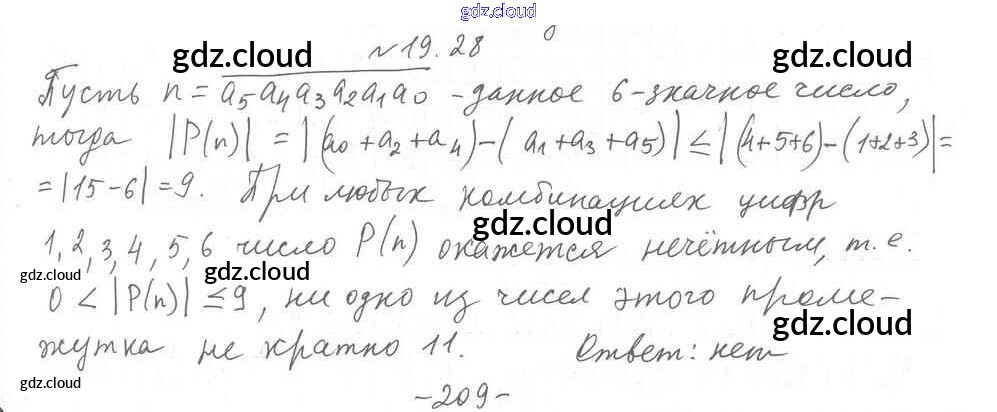 gdz.cloud
№19.28
gdz.cloud
gdz.cloud
Пусть n = a₅a₄a₃a₂a₁a₀ - данное 6-значное число,
gdz.cloud
тогда |P(n)| = |(a₀+a₂+a₄)-(a₁+a₃+a₅)| ≤ |(4+5+6)-(1+2+3)|=
= |15-6| = 9. При любых комбинациях цифр
gdz.cloud
1, 2, 3, 4, 5, 6 число P(n) окажется нечётным, т.е.
gdz.cloud
gdz.cloud
0 < |P(n)| ≤ 9, ни одно из чисел этого проме-
gdz.cloud
gdz.cloud
жутка не кратно 11. Ответ: нет
gdz.cloud
-209-